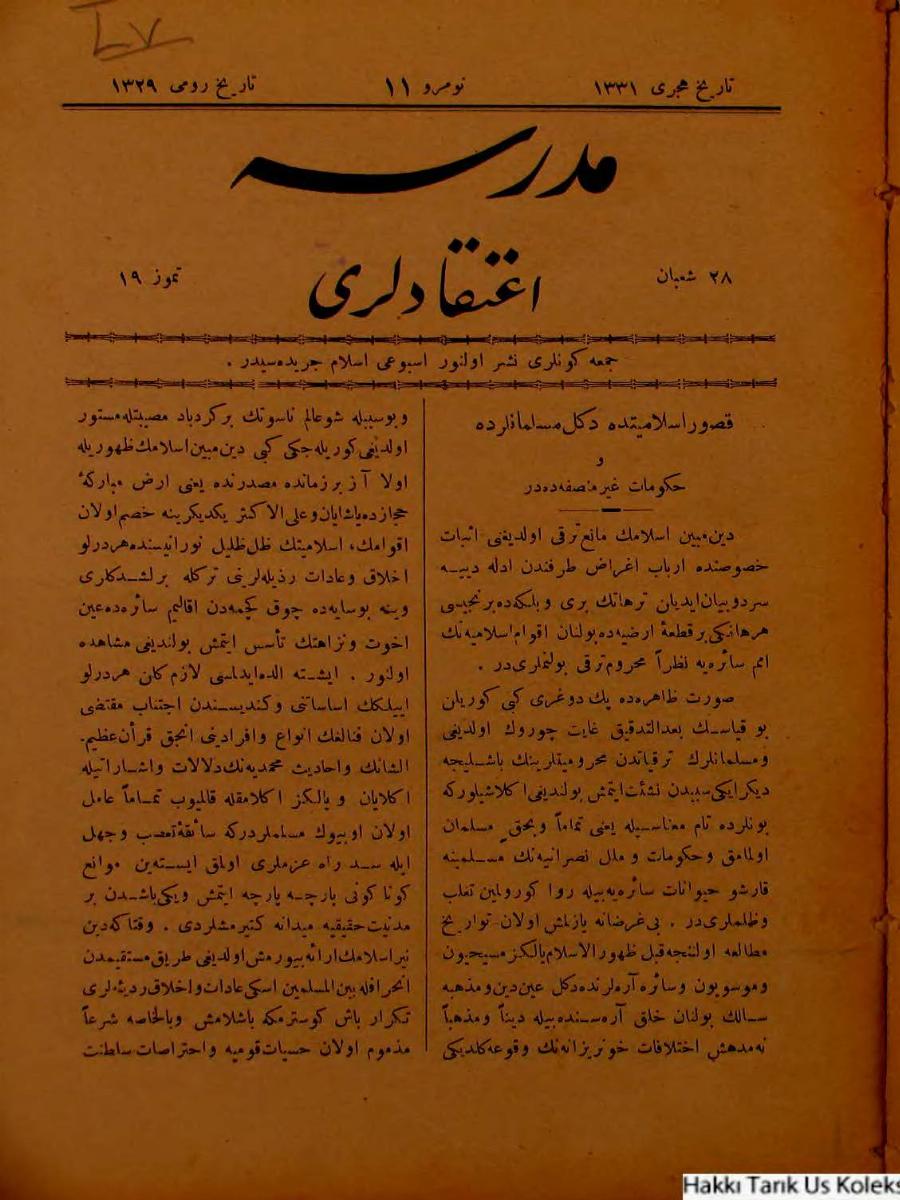 تاریخ هجری ١٣٣١
نومرو ١١
تاریخ رومی ١٣٢٩
مدرسه
اعتقادلری
٢٨ شعبان
تموز ١٩
جمعه کونلری نشر اولنور اسبوعی اسلام جریده‌سیدر .
قصور اسلامیتده دکل مسلمانلرده
و
حکومات غیر منصفه‌ده‌در
دین مبین اسلامك مانع ترقی اولدیغنی اثبات
خصوصنده ارباب اغراض طرفندن ادله دییـه
سرد و بیان ایدیلن ترهاتك بری و بلکه‌ده برنجیسی
هر هانکی بر قطعهٔ ارضیه‌ده بولنان اقوام اسلامیه‌نك
امم سائره‌یه نظراً محروم ترقی بولنملری‌در .
صورت ظاهره‌ده پك دوغری کبی کوریلن
بو قیاسـك بعدالتدقیق غایت چوروك اولدیغنی
و مسلمانلرك ترقیاتدن محرومیتلرینك باشـلیجه
دیکر ایکی سببدن نشئت ایتمش بولندیغنی اکلاشیلور که
بونلرده تام معناسـیله یعنی تماماً وبحق مسلمان
اولمامق وحکومات و ملل نصرانیه‌نك مسـلمینه
قارشو حیوانات سائره‌یه بیله روا کورولمین تغلب
وظلملری‌در . بی‌غرضانه یازلمش اولان تواریخ
مطالعه اولننجه قبل ظهور الاسلام یالکز مسیحیون
وموسویون وسائره آره‌لرنده دکل عین دین ومذهبه
سـالك بولنان خلق آره‌سـنده بیله دیناً ومذهباً
نه مدهش اختلافات خونریزانه‌نك وقوعه کلدیکی
وبوسببله شو عالم ناسوتك برکردباد مصیبتله مستور
اولدیغی کوریله‌جکی کبی دین مبین اسلامك ظهوریله
اولا آز بر زمانده مصدرنده یعنی ارض مبارکهٔ
حجازده یاشایان وعلی الاکثر یکدیکرینه خصم اولان
اقوامك، اسلامیتك ظل ظلیل نورانیسنده هر درلو
اخلاق وعادات رذیله‌لرینی ترکله برلشـدکلری
وینه بوسایه‌ده چوق کچمه‌دن اقالیم سائره‌ده عین
اخوت ونزاهتك تأسس ایتمش بولندیغی مشاهده
اولنور . ایشـته الده ایدلسی لازم کلن هر درلو
اییلکك اساساتنی وکندیسـندن اجتناب مقتضی
اولان فنالغك انواع وافرادینی انجق قرآن عظیم‌
الشانك واحادیث محمدیه‌نك دلالات واشاراتیله
اکلایان ویالکز اکلامقله قالمیوب تمـاماً عامل
اولان او بیوك مسلملردرکه سائقهٔ تعصب وجهل
ایله سـد راه عزملری اولمق ایستـه‌ین موانع
کوناکونی پارچـه پارچه ایتمش ویکی باشـدن بر
مدنیت حقیقیه میدانه کتیرمشلردی . وقتاکه دین
نیر اسلامك ارائه بیورمش اولدیغی طریق مستقیمدن
انحرافله بین‌المسلمین اسکی عادات واخلاق ردیئه‌لری
تکرار باش کوسترمکه باشلامش وبالخاصه شرعاً
مذموم اولان حسیات قومیه واحتراصات سلطنت
Hakkı Tarık Us Koleks